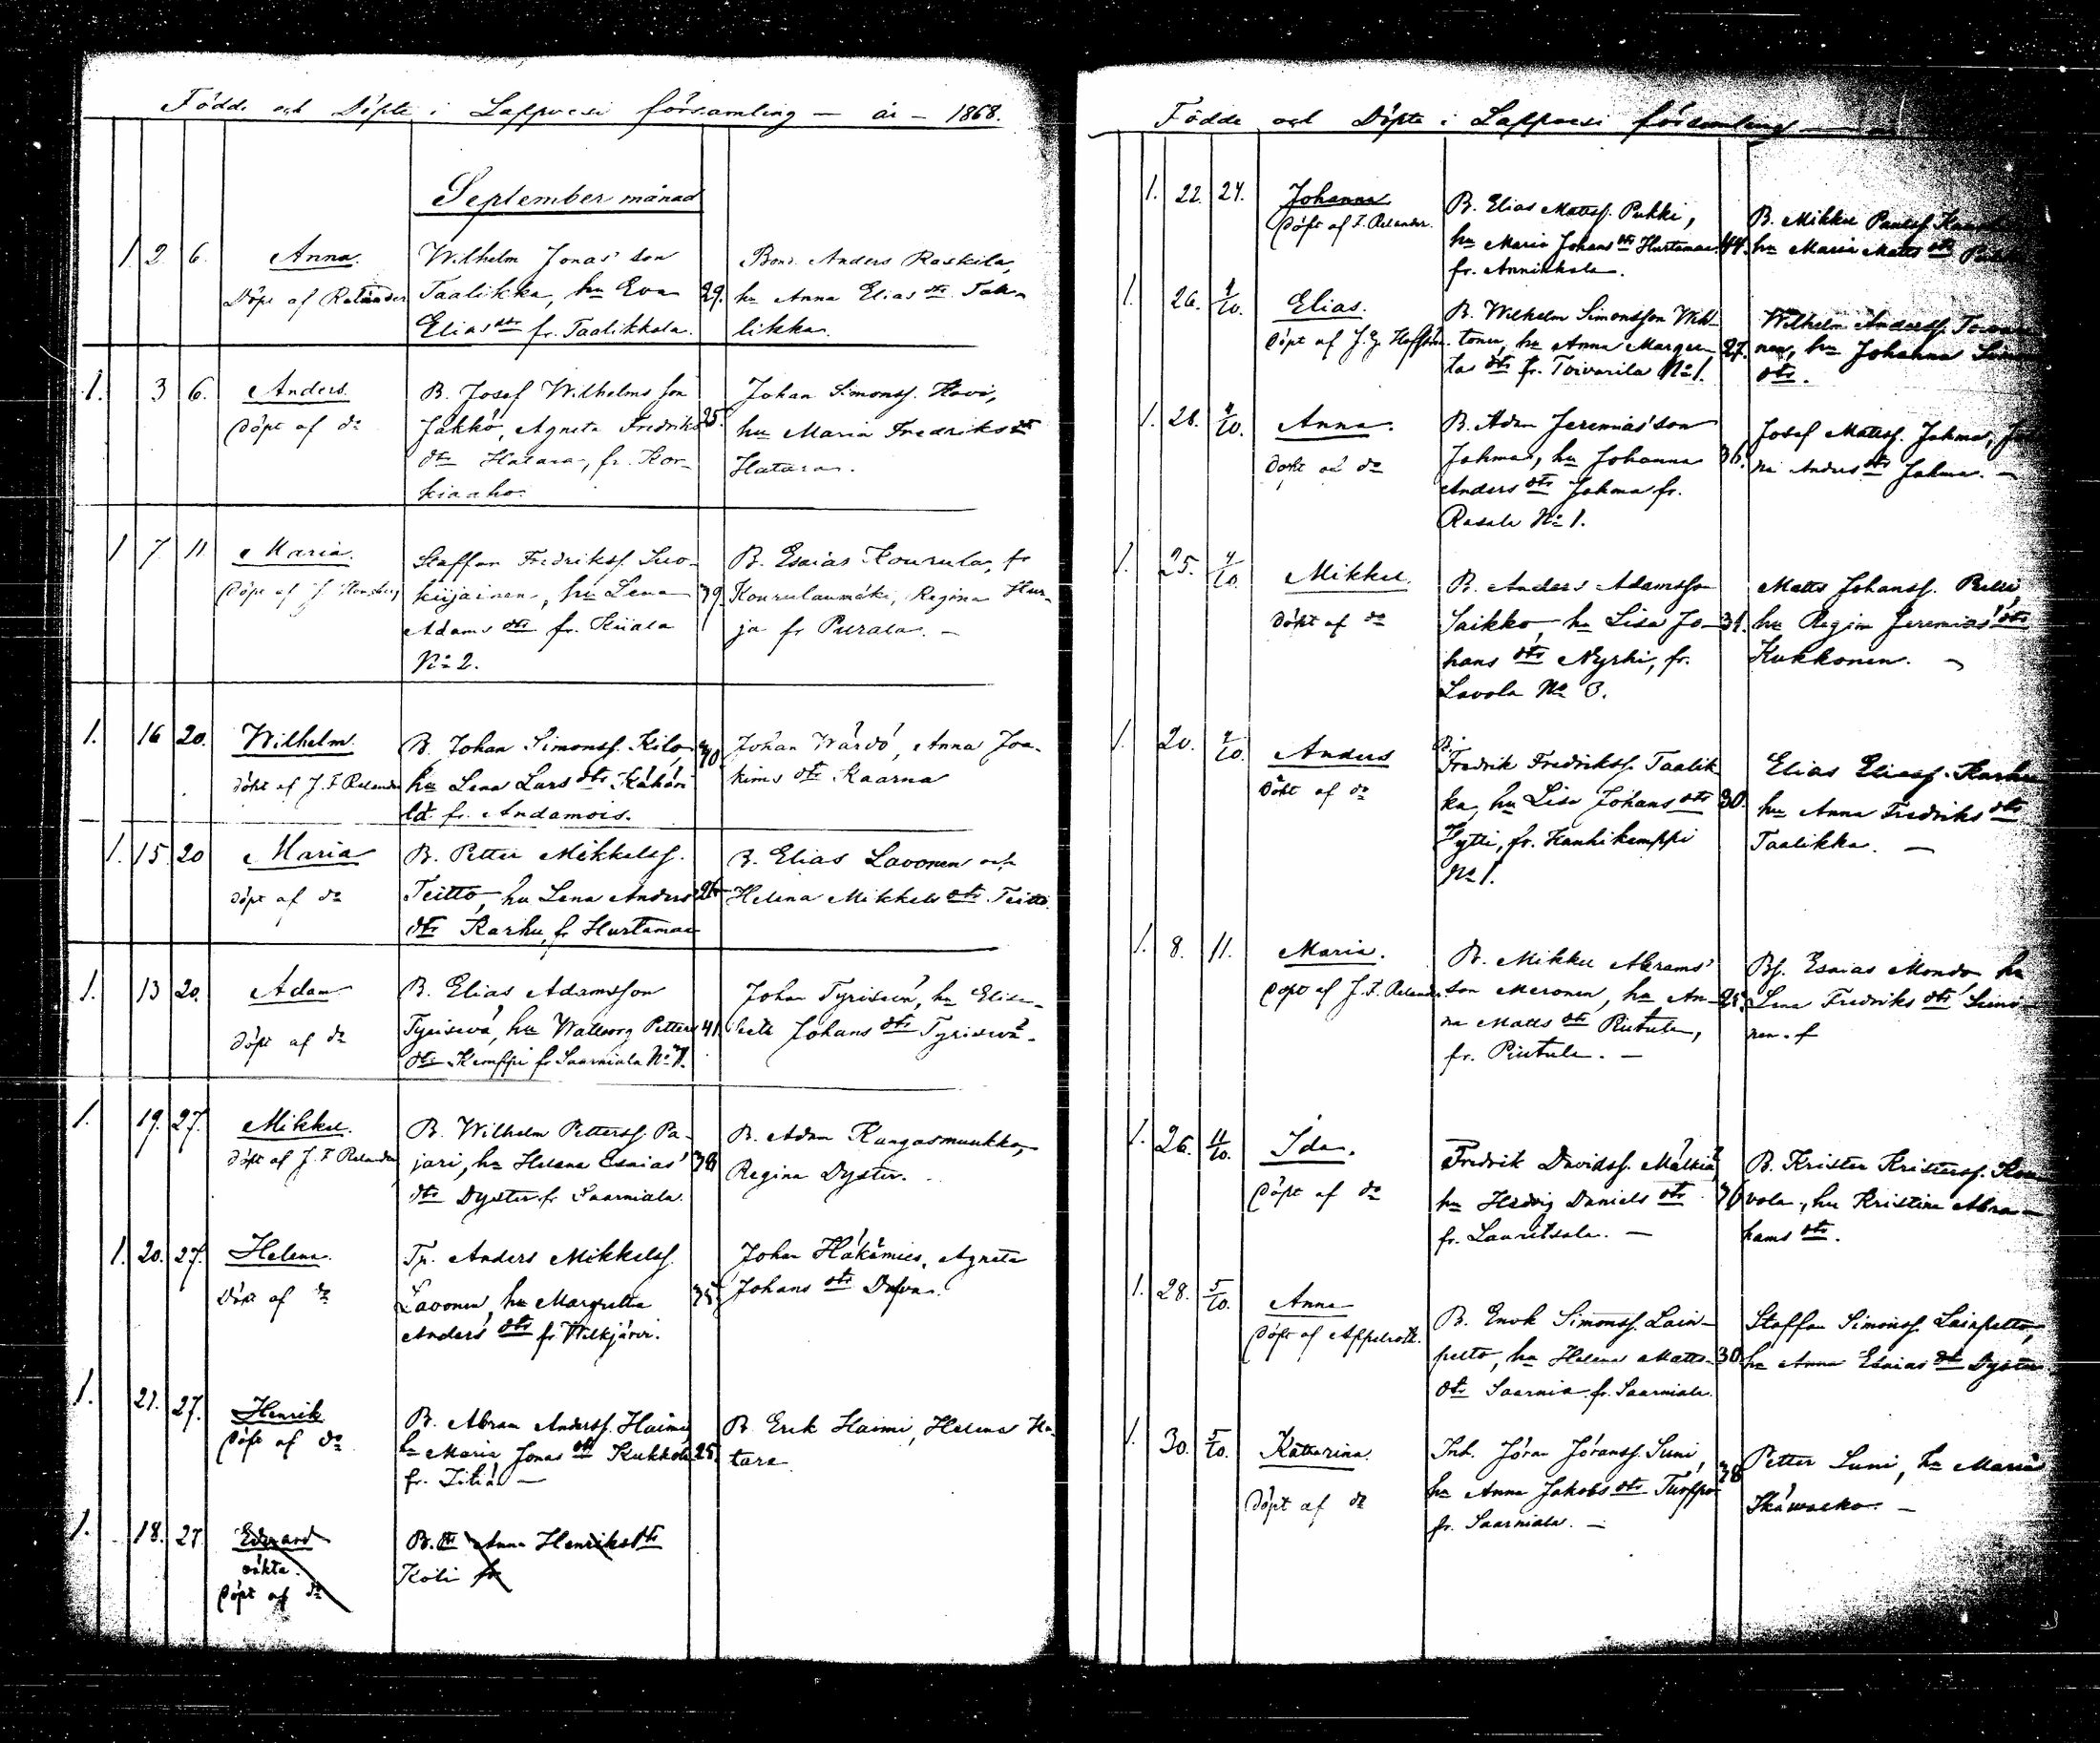 Födde och Döpte i Lappvesi församling — år — 1868.
September månad
1. 2. 6. Anna. Wilhelm Jonas' son Bond. Anders Raskila,
Döpt af Relander Taalikka, hu Eva 29. hu Anna Elias dtr Taa-
Elias dtr fr. Taalikkala. likka.
1. 3 6. Anders. B. Josef Wilhelms son Johan Simonss. Hovi,
Döpt af do Jákkö, Agneta Fredriks 25. hu Maria Fredriks dtr
dtr Hatara, fr. Kor- Hatara.
kiaaho.
1 7 11 Maria. Staffan Fredrikss. Suo- B. Esaias Kourula, fr
Döpt af J. kiijainen, hu Lena 39. Kourulanmäki, Regina Hur-
Adams dtr fr. Kiiala ja fr Purala. —
No 2.
1. 16 20. Wilhelm. B. Johan Simonss. Kilo, 40 Johan Wärdö, Anna Joa-
döpt af J. F Relander hu Lena Lars dtr Kähäri kims dtr Kaarna
fr. Andamois.
1. 15 20 Maria B. Petter Mikkelss. B. Elias Lavonen och
döpt af do Teitto, hu Lena Anders 26 Helena Mikkels dtr Teitto.
dtr Karhu, fr Hurtamaa
1. 13 20. Adam B. Elias Adamsson Johan Tyrisevä, hu Elisa-
döpt af do Tyrisevä, hu Walborg Petters 41. beth Johans dtr Tyrisevä.
dtr Kemppi fr Saarniala No 7.
1. 19. 27. Mikkel. B. Wilhelm Petterss. Pa- B. Adam Kangasmuukko,
döpt af J. F Relander jari, hu Helena Esaias' 38 Regina Dyster.
dtr Dyster fr Saarniala.
1. 20. 27. Helena. Tp. Anders Mikkelss. Johan Häkämies, Agneta
Döpt af do Lavonen, hu Margretha 35 Johans dtr
Anders' dtr fr Wilkjärvi.
1. 21. 27. Henrik B. Abram Anderss. Haimi, B. Erik Haimi, Helena Ha-
Döpt af do hu Maria Jonas dtr Kukkola 25. tara
fr.
1. 18. 27. Edvard B. dtr Anna Henriks dtr
oäkta. Koli fr
Döpt af do
Födde och Döpte i Lappvesi församling —
1. 22. 24. Johanna B. Elias Mattss. Pukki, B. Mikkel Paulss.
Döpt af F. Relander. hu Maria Johans dtr Hurtamaa 44. hu Maria Matts dtr
fr. Annikkala.
1. 26. 4/10. Elias. B. Wilhelm Simonsson Wil- Wilhelm Anderss.
Döpt af J. G. tonen, hu Anna Margre- 27. nen, hu Johanna
tas dtr fr. Toivarila No 1. dtr.
1. 28. 4/10. Anna. B. Adam Jeremias' son Josef Mattss. Jahma,
Döpt af do Jahma, hu Johanna 36. na Anders dtr Jahma. —
Anders dtr Jahma fr.
Rasala No 1.
1. 25. 4/10. Mikkel. B. Anders Adamsson Matts Johanss. Pulli,
Döpt af do Saikko, hu Lisa Jo- 31. hu Regina Jeremias' dtr
hans dtr Nyrhi, fr. Kukkonen. —
Lavola No 3.
1. 20. 4/10. Anders B. Fredrik Fredrikss. Taalik- Elias Eliass. Karhu
Döpt af do ka, hu Lisa Johans dtr 30. hu Anna Fredriks dtr
Pytti, fr. Hanhikemppi Taalikka. —
No 1.
1. 8. 11. Maria. B. Mikkel Abrams' Bs. Esaias Mondo hu
Döpt af J. F. Relander. son Meronen, hu An- 25. Lena Fredriks dtr
na Matts dtr Piutula, nen.
fr. Piutula. —
1. 26. 11/10. Ida. Fredrik Davidss. Mälkiä, B. Krister Kristerss. Kou-
Döpt af do hu Hedvig Daniels dtr 36 vola, hu Kristina Abra-
fr. Lauritsala. — hams dtr.
1. 28. 5/10. Anna B. Enok Simonss. Lain- Staffan Simonss. Lainpelto,
Döpt af Appelroth. pelto, hu Helena Matts- 30. hu Anna Esaias dtr Dyster
dtr Saarnia fr. Saarniala.
1. 30. 5/10. Katharina. Inh. Jöran Jöranss. Suni, Petter Suni, hu Maria
Döpt af do hu Anna Jakobs dtr Turppo 38
fr. Saarniala. —